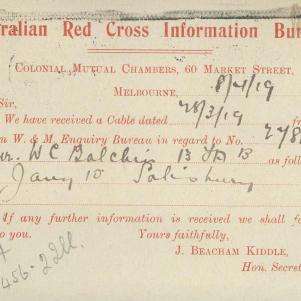 ralian Red Cross Information Bur
Colonial Mutual Chambers, 60 Market Street,
Melbourne, 8/4/19
Sir,
We have received a Cable dated 28/3/19 fr
n W. & M. Enquiry Bureau in regard to No. 278
W C Balchin 13 FA B as follo
Jany 10 Salisbury
If any further information is received we shall fo
o you. Yours faithfully,
J. Beacham Kiddle,
Hon. Secret